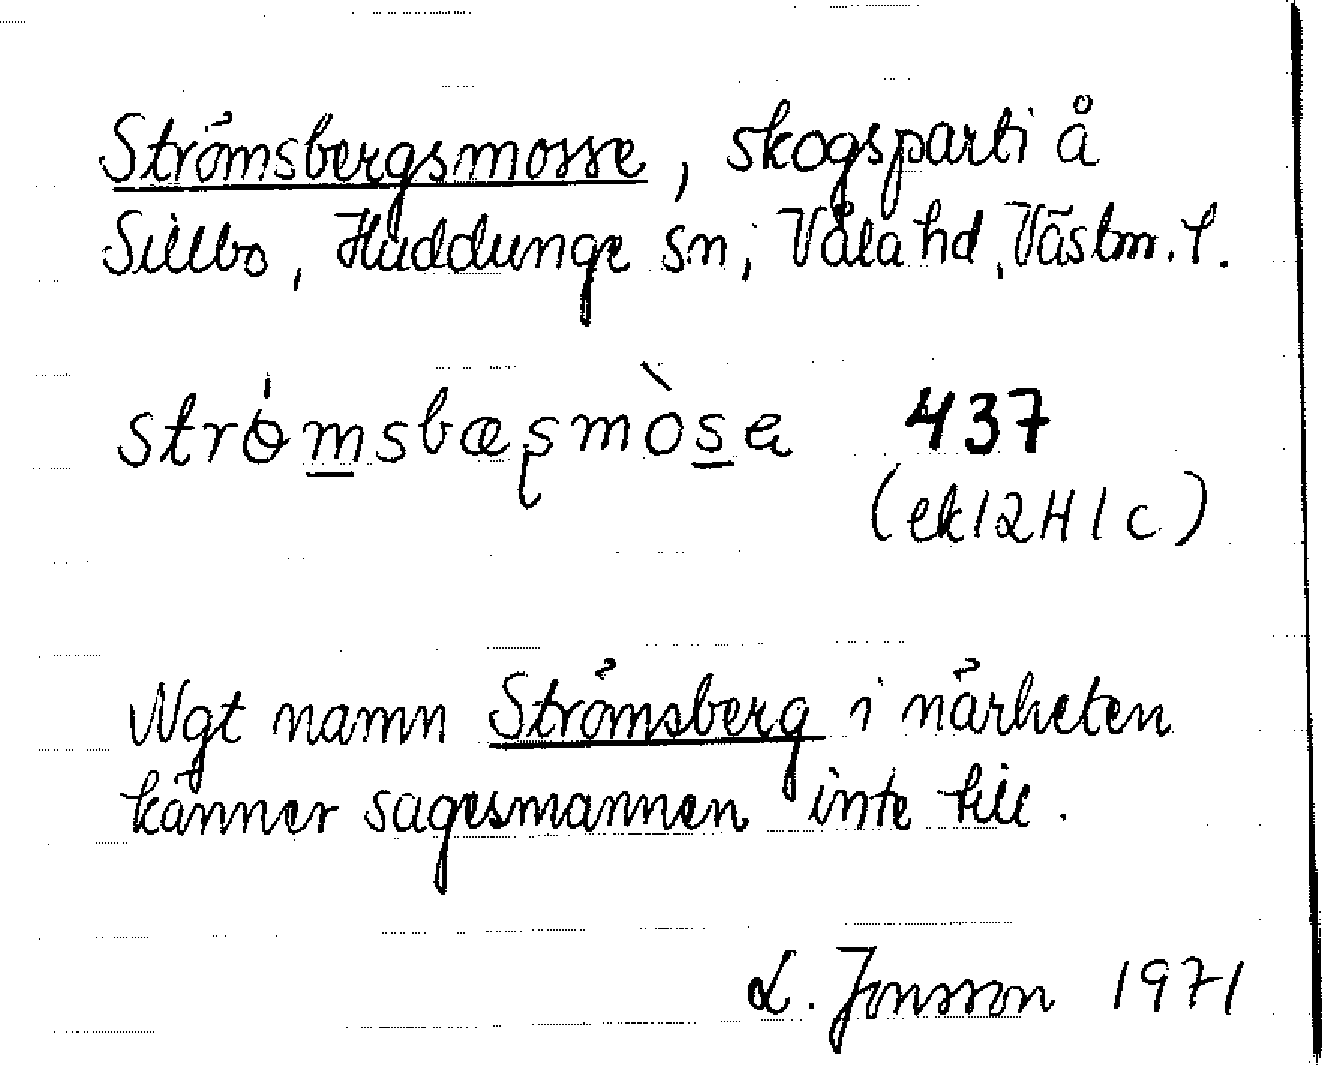 Strömsbergsmosse, skogsparti å
Sillbo, Huddunge sn, Våla hd, Västm. l.
strömsbæşmòsa 437
(ek 12H1c)
Ngt namn Strömsberg i närheten
känner sagesmannen inte till.
L. Jonsson 1971